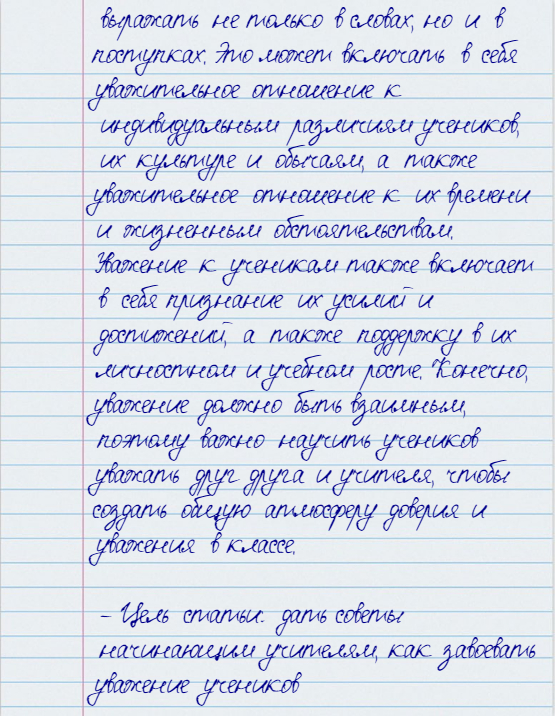 выражать не только в словах, но и в
поступках. Это может включать в себя
уважительное отношение к
индивидуальным различиям учеников,
их культуре и обычаям, а также
уважительное отношение к их времени
и жизненным обстоятельствам.
Уважение к ученикам также включает
в себя признание их усилий и
достижений, а также поддержку в их
личностном и учебном росте. Конечно,
уважение должно быть взаимным,
поэтому важно научить учеников
уважать друг друга и учителя, чтобы
создать общую атмосферу доверия и
уважения в классе.
- Цель статьи: дать советы
начинающим учителям, как завоевать
уважение учеников